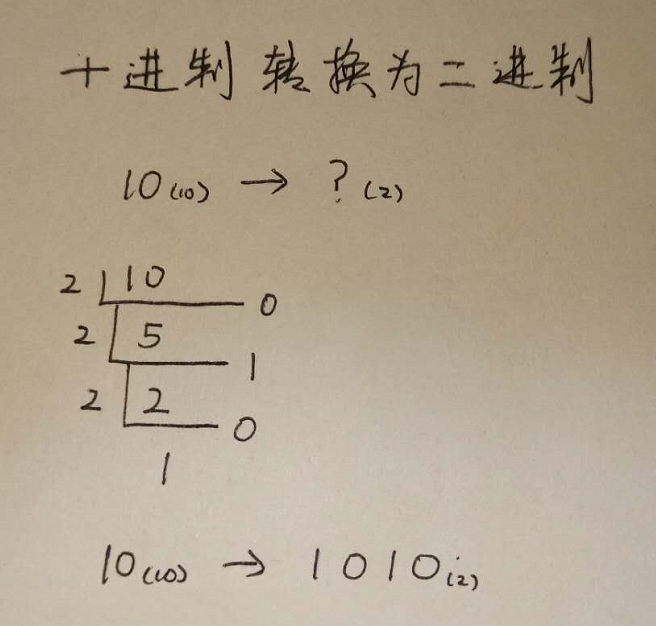 十进制 转换为二进制
10(10) → ?(2)
2 10 0
2 5 1
2 2 0
1
10(10) → 1010(2)